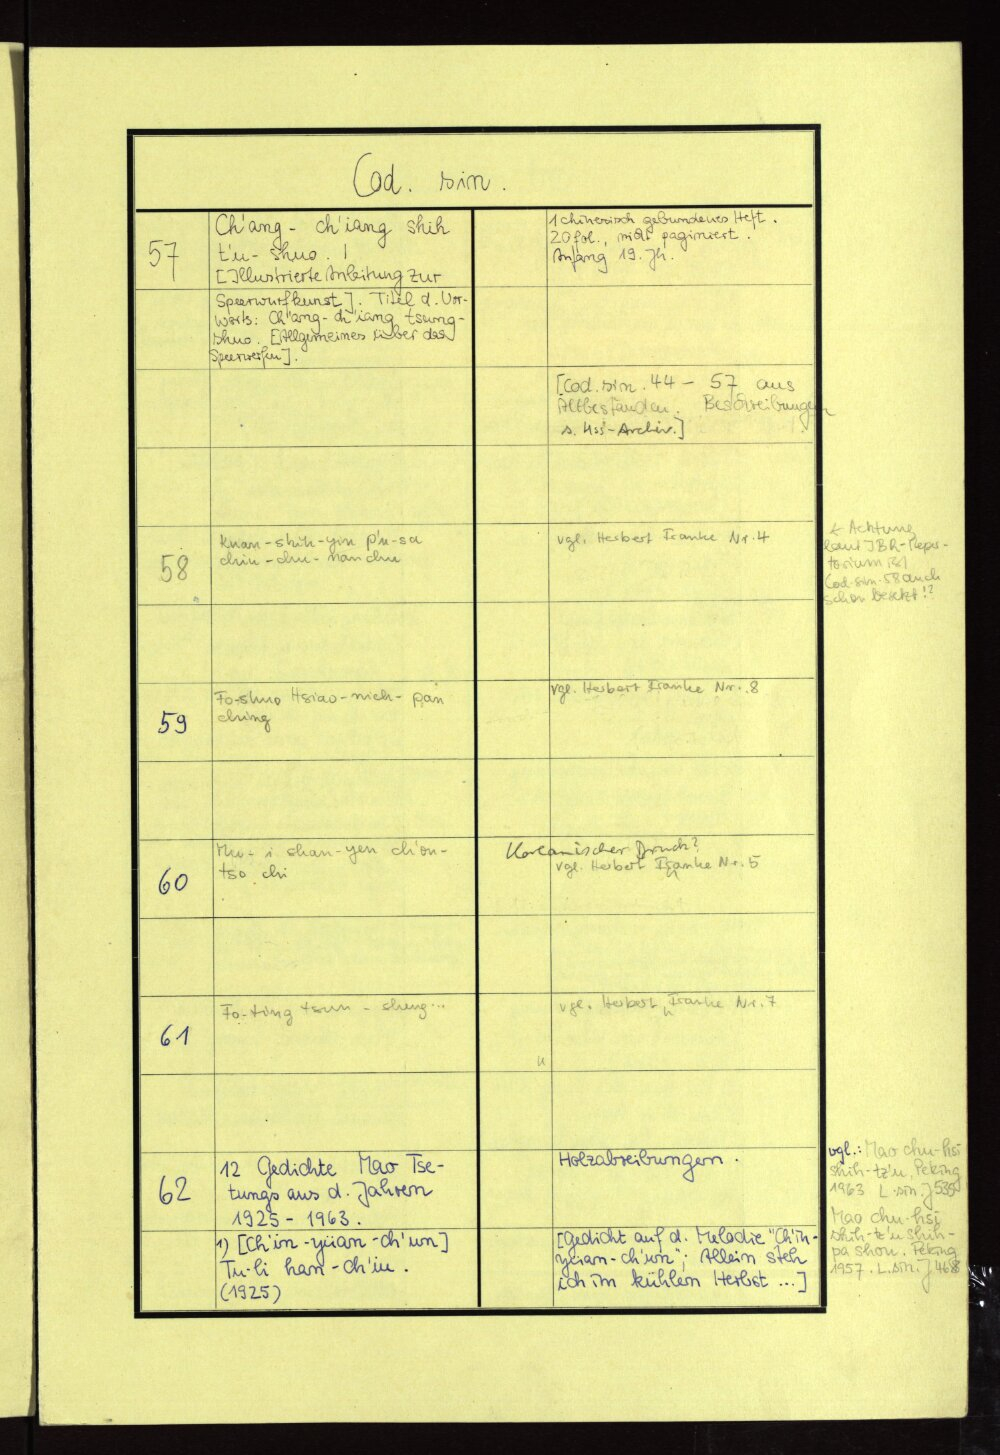 Cod. sin.
57
Ch'ang-ch'iang shih
t'u-shuo. |
[Illustrierte Anleitung zur
Speerwurfkunst]. Titel d. Vor-
worts: Ch'ang-ch'iang tsung-
shuo. [Allgemeines über das
Speerwerfen].
1 chinesisch gebundenes Heft.
20 fol., nicht paginiert.
Anfang 19. Jh.
[Cod. sin. 44 – 57 aus
Altbeständen. Beschreibungen
s. Hss-Archiv.]
58
Kuan-shih-yin p'u-sa
chiu-chu-nan chu
vgl. Herbert Franke Nr. 4
← Achtung
laut JBR-Reper-
torium ist
Cod. sin. 58 auch
schon besetzt!?
59
Fo-shuo Hsiao-nieh-pan
ching
vgl. Herbert Franke Nr. 8
60
i shan-yen ch'on-
tso chi
Koreanischer Druck?
vgl. Herbert Franke Nr. 5
61
Fo-ting tsun-sheng...
vgl. Herbert Franke Nr. 7
62
12 Gedichte Mao Tse-
tungs aus d. Jahren
1925 – 1963.
Holzabreibungen.
1) [Ch'in-yüan-ch'un]
Tu-li han-ch'iu.
(1925)
[Gedicht auf d. Melodie "Ch'in-
yüan-ch'un"; Allein steh
ich im kühlen Herbst ...]
vgl.: Mao chu-hsi
shih-tz'u, Peking
1963 L. sin. J 535
Mao chu-hsi
shih-tz'u shih-
pa shou. Peking
1957. L. sin. J 468